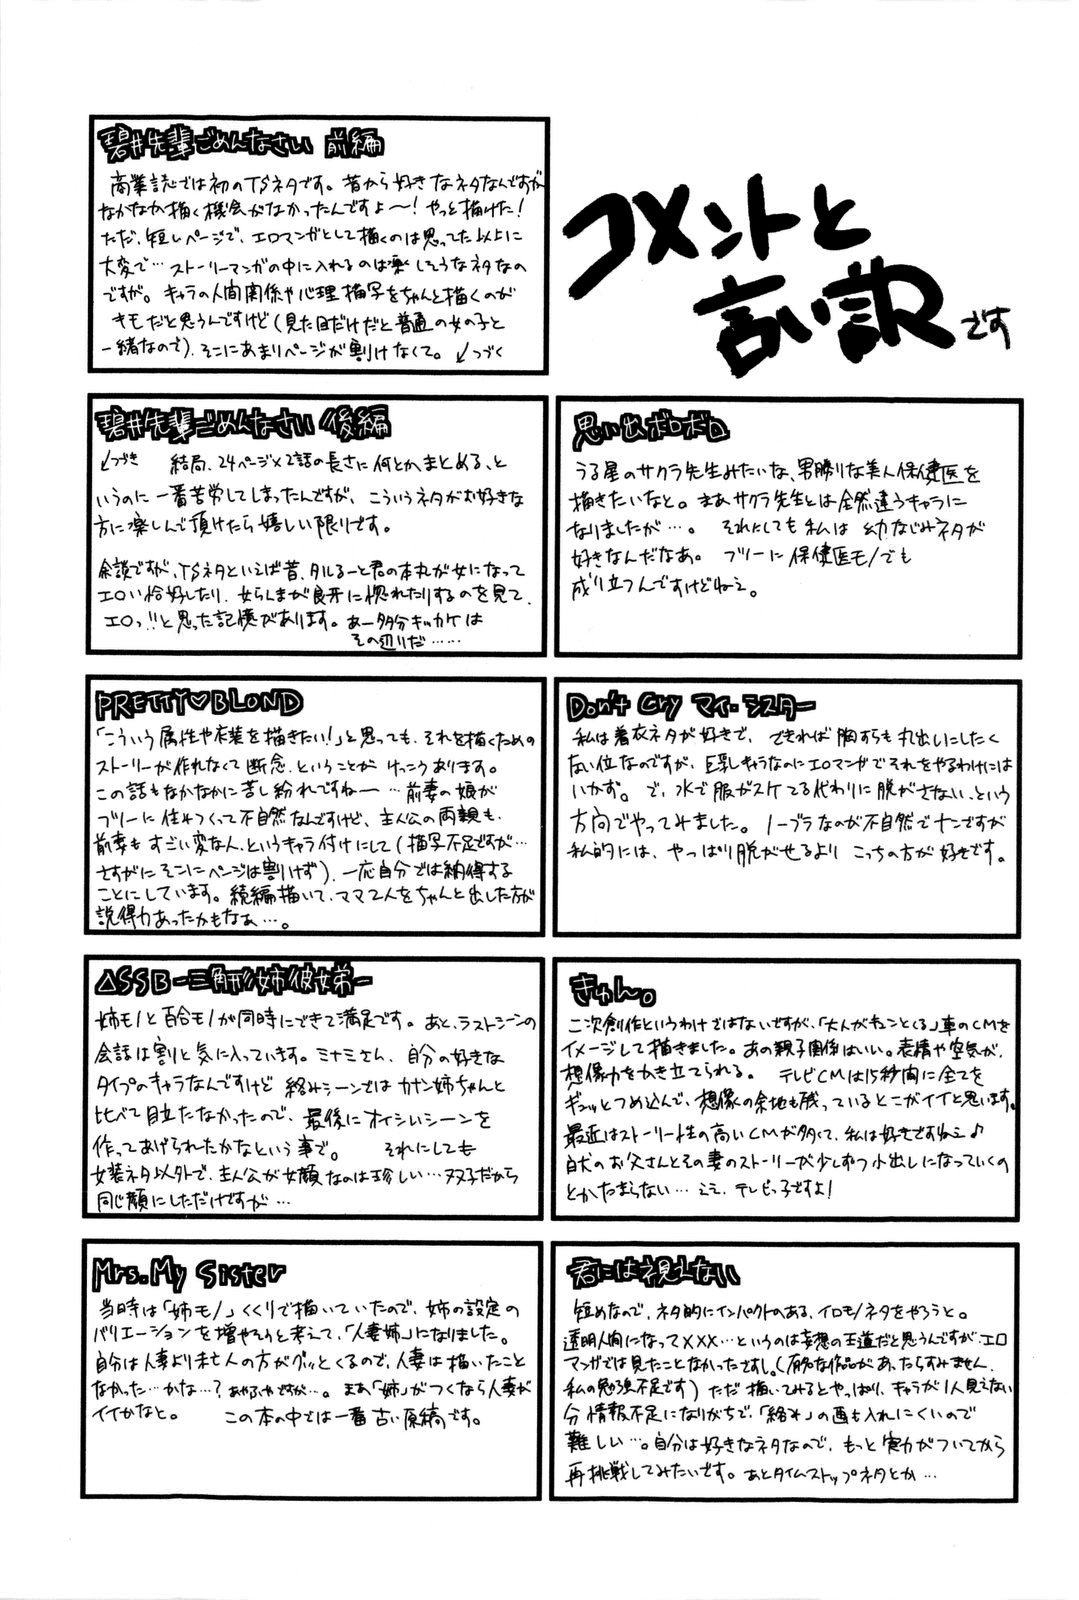 コメントと
言い訳です
碧井先輩ごめんなさい 前編
商業誌では初のTSネタです。昔から好きなネタなんですが
なかなか描く機会がなかったんですよ〜！やっと描けた！
ただ、短いページで、エロマンガとして描くのは思ってた以上に
大変で…ストーリーマンガの中に入れるのは楽しそうなネタなの
ですが。キャラの人間関係や心理描写をちゃんと描くのが
キモだと思うんですけど（見た目だけだと普通の女の子と
一緒なので）、そこにあまりページが割けなくて。↙つづく
碧井先輩ごめんなさい 後編
↙つづき 結局、24ページ×2話の長さに何とかまとめる、と
いうのに一番苦労してしまったんですが、こういうネタがお好きな
方に楽しんで頂けたら嬉しい限りです。
余談ですが、TSネタといえば昔、タルるート君の本丸が女になって
エロい恰好したり、女らんまが良牙に惚れたりするのを見て、
エロっ!!と思った記憶があります。あー多分キッカケは
その辺りだ……
思い出ボロボロ
うる星のサクラ先生みたいな、男勝りな美人保健医を
描きたいなと。まあサクラ先生とは全然違うキャラに
なりましたが…。それにしても私は幼なじみネタが
好きなんだなあ。フツーに保健医モノでも
成り立つんですけどねえ。
PRETTY♡BLOND
「こういう属性や衣装を描きたい！」と思っても、それを描くための
ストーリーが作れなくて断念、ということがけっこうあります。
この話もなかなかに苦し紛れですねー…前妻の娘が
フツーに住みついてて不自然なんですけど、主人公の両親も、
前妻もすごい変な人、というキャラ付けにして（描写不足ですが…
さすがにそこにページは割けず）、一応自分では納得する
ことにしています。続編描いて、ママ2人をちゃんと出した方が
説得力あったかもなぁ…。
Don't Cry マイ・シスター
私は着衣ネタが好きで、できれば胸すらも丸出しにしたく
ない位なのですが、巨乳キャラなのにエロマンガでそれをやるわけには
いかず。で、水で服がスケてる代わりに脱がさない、という
方向でやってみました。ノーブラなのが不自然でナンですが
私的には、やっぱり脱がせるよりこっちの方が好きです。
△SSB－三角形姉彼女弟－
姉モノと百合モノが同時にできて満足です。あと、ラストシーンの
会話は割と気に入っています。ミナミさん、自分の好きな
タイプのキャラなんですけど絡みシーンではカナン姉ちゃんと
比べて目立たなかったので、最後にオイシいシーンを
作ってあげられたかなという事で。それにしても
女装ネタ以外で、主人公が女顔なのは珍しい…双子だから
同じ顔にしただけですが…
きゅん。
二次創作というわけではないですが、「大人がキュンとくる」車のCMを
イメージして描きました。あの親子関係はいい。表情や空気が、
想像力をかき立てられる。テレビCMは15秒間に全てを
ギュッとつめ込んで、想像の余地も残っているとこがイイと思います。
最近はストーリー性の高いCMが多くて、私は好きですねえ♪
白犬のお父さんとその妻のストーリーが少しずつ小出しになっていくの
とかたまらない…ええ、テレビっ子ですよ！
Mrs. My Sister
当時は「姉モノ」くくりで描いていたので、姉の設定の
バリエーションを増やそうと考えて、「人妻姉」になりました。
自分は人妻より未亡人の方がグッとくるので、人妻は描いたこと
なかった…かな…？あやふやですが…。まあ「姉」がつくなら人妻が
イイかなと。この本の中では一番古い原稿です。
君には視えない
短めなので、ネタ的にインパクトのある、イロモノネタをやろうと。
透明人間になって×××…というのは妄想の王道だと思うんですが、エロ
マンガでは見たことなかったですし。（有名な作品があったらすみません、
私の勉強不足です）ただ描いてみるとやっぱり、キャラが1人見えない
分情報不足になりがちで、「絡み」の画も入れにくいので
難しい…。自分は好きなネタなので、もっと実力がついてから
再挑戦してみたいです。あとタイムストップネタとか…